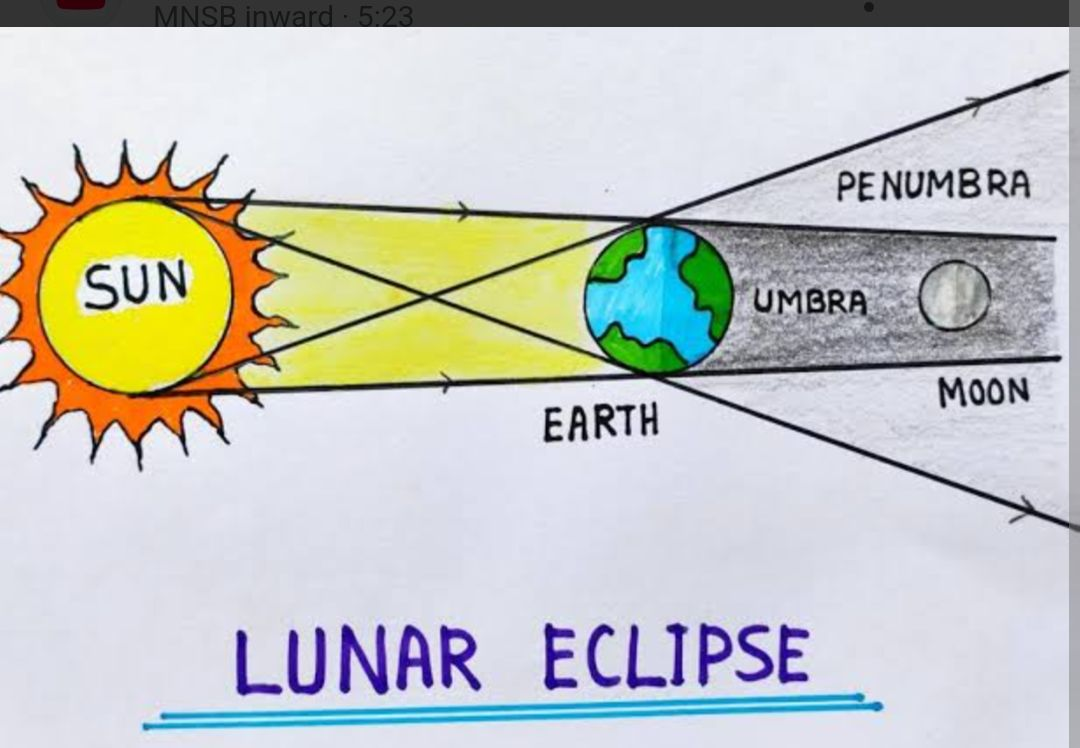 MNSB inward · 5:23
PENUMBRA
SUN
UMBRA
MOON
EARTH
LUNAR ECLIPSE